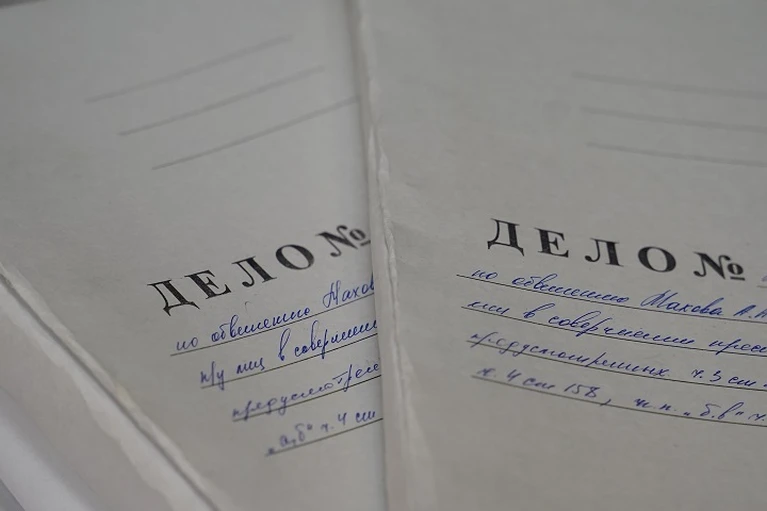 ДЕЛО №
по обвинению Махов
п/у лиц в совершени
предусмотрен
"а,б" ч. 4 ст
ДЕЛО №
по обвинению Махова А.А
лиц в совершении прес
предусмотренных ч. 3 ст.
ч. 4 ст 158, п.п. "б,в" ч.